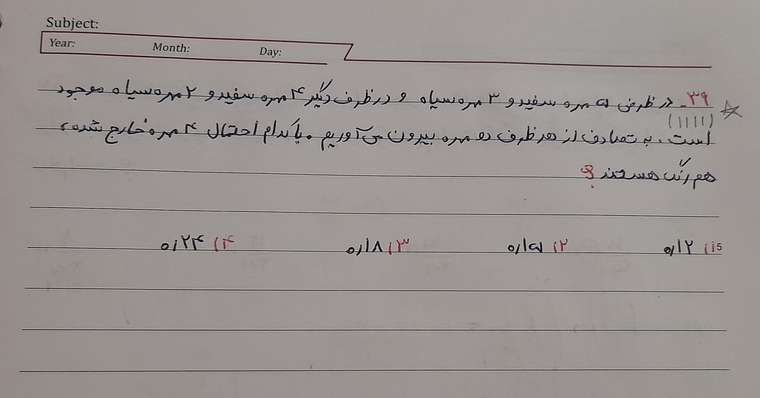 Subject:
Year: Month: Day:
۳۹ـ در ظرفی ۵ مهره سفید و ۳ مهره سیاه و در ظرف دیگر ۴ مهره سفید و ۲ مهره سیاه موجود
(۱۱۱۱)
است. به تصادف از هر ظرف دو مهره بیرون می‌آوریم. با کدام احتمال ۴ مهره خارج شده،
هم رنگ هستند؟
۱) ۰/۱۲ ۲) ۰/۱۵ ۳) ۰/۱۸ ۴) ۰/۲۴